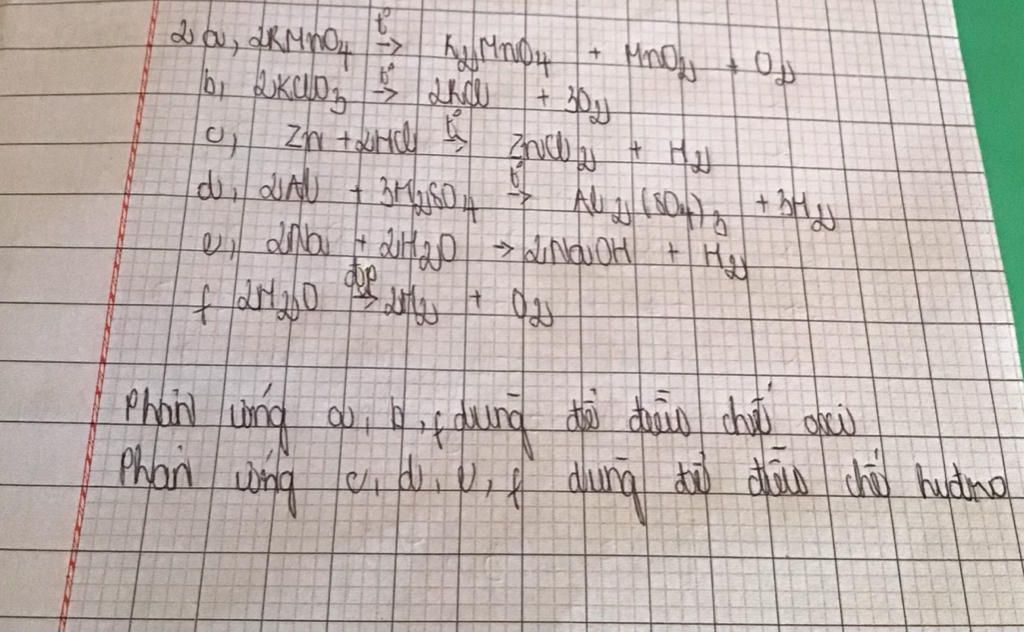 2 a, 2KMnO₄ t° → K₂MnO₄ + MnO₂ + O₂
b, 2KClO₃ t° → 2KCl + 3O₂
c, Zn + 2HCl t° → ZnCl₂ + H₂
d, 2Al + 3H₂SO₄ t° → Al₂(SO₄)₃ + 3H₂
e, 2Na + 2H₂O → 2NaOH + H₂
f 2H₂O đp → 2H₂ + O₂
Phản ứng a, b, f dùng để điều chế oxi
Phản ứng c, d, e, f dùng để điều chế hydro